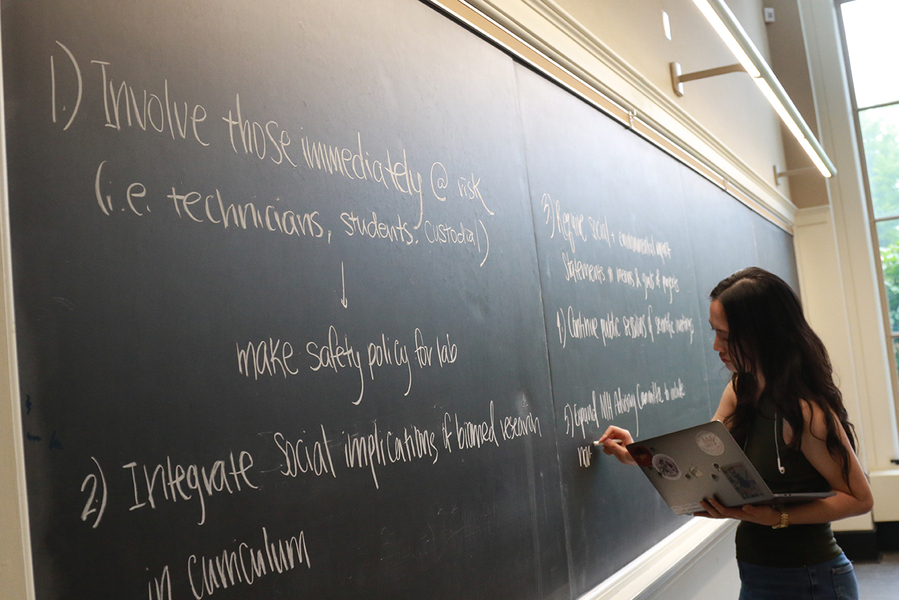 1.) Involve those immediately @ risk
(i.e. technicians, students, custodial)
↓
make safety policy for lab
2) Integrate social implications of biomed research
in curriculum
3) Require social + environmental impact
statements in
) Continue public sessions of scientific meetings
5) Expand NIH Advisory Committee to include